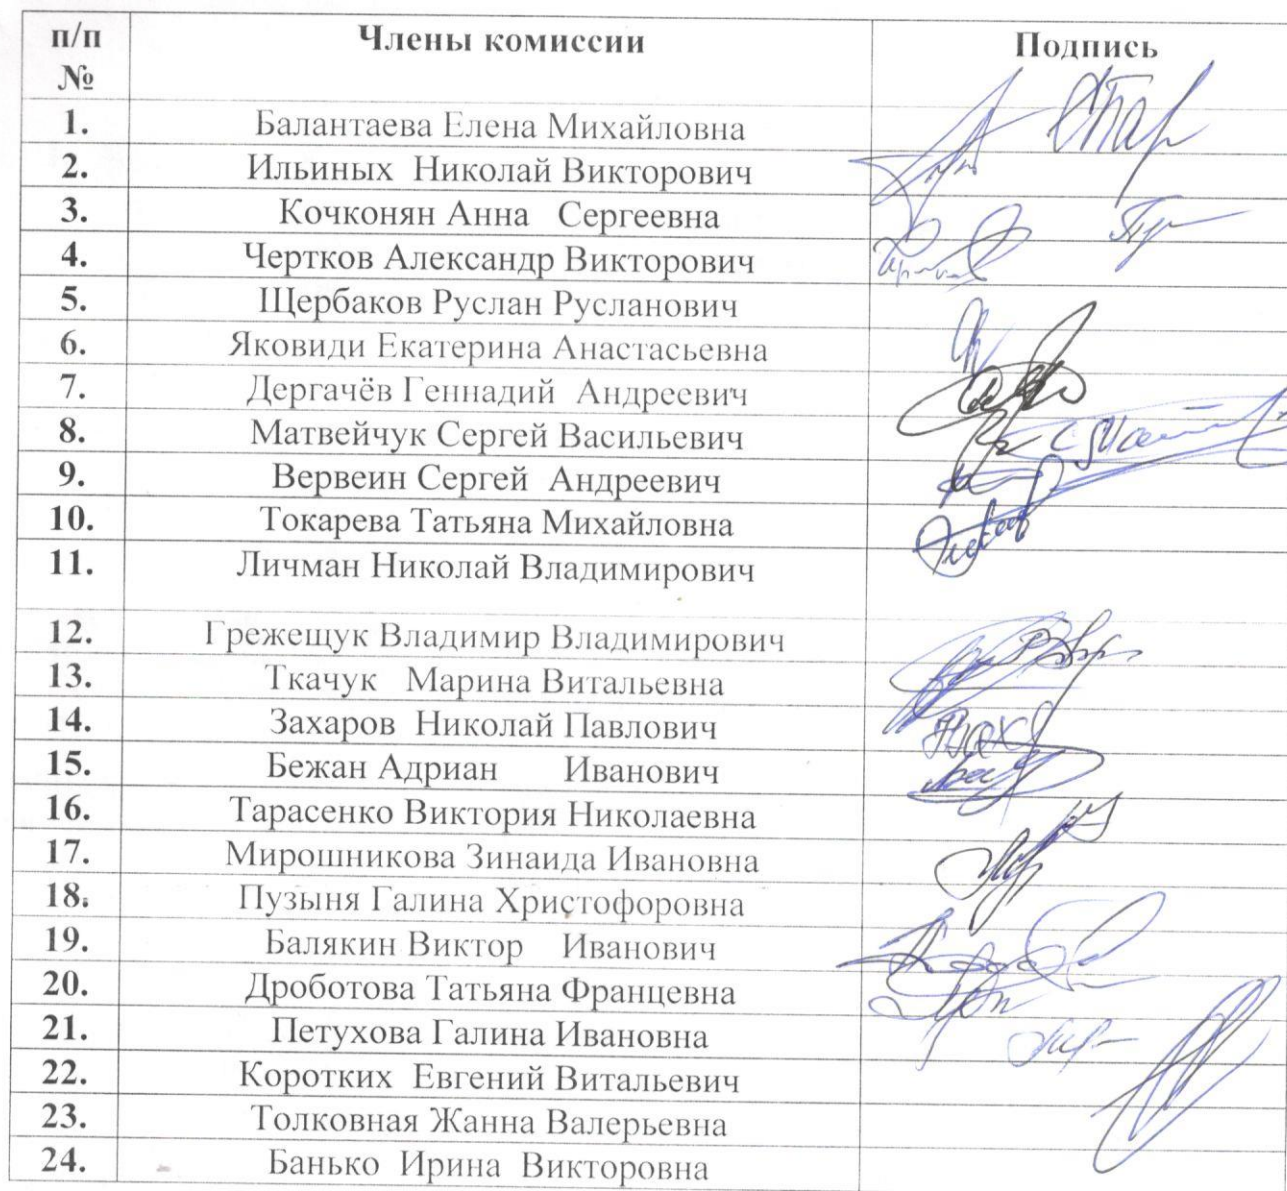 п/п № Члены комиссии Подпись
1. Балантаева Елена Михайловна
2. Ильиных Николай Викторович
3. Кочконян Анна Сергеевна
4. Чертков Александр Викторович
5. Щербаков Руслан Русланович
6. Яковиди Екатерина Анастасьевна
7. Дергачёв Геннадий Андреевич
8. Матвейчук Сергей Васильевич
9. Вервеин Сергей Андреевич
10. Токарева Татьяна Михайловна
11. Личман Николай Владимирович
12. Грежещук Владимир Владимирович
13. Ткачук Марина Витальевна
14. Захаров Николай Павлович
15. Бежан Адриан Иванович
16. Тарасенко Виктория Николаевна
17. Мирошникова Зинаида Ивановна
18. Пузыня Галина Христофоровна
19. Балякин Виктор Иванович
20. Дроботова Татьяна Францевна
21. Петухова Галина Ивановна
22. Коротких Евгений Витальевич
23. Толковная Жанна Валерьевна
24. Банько Ирина Викторовна